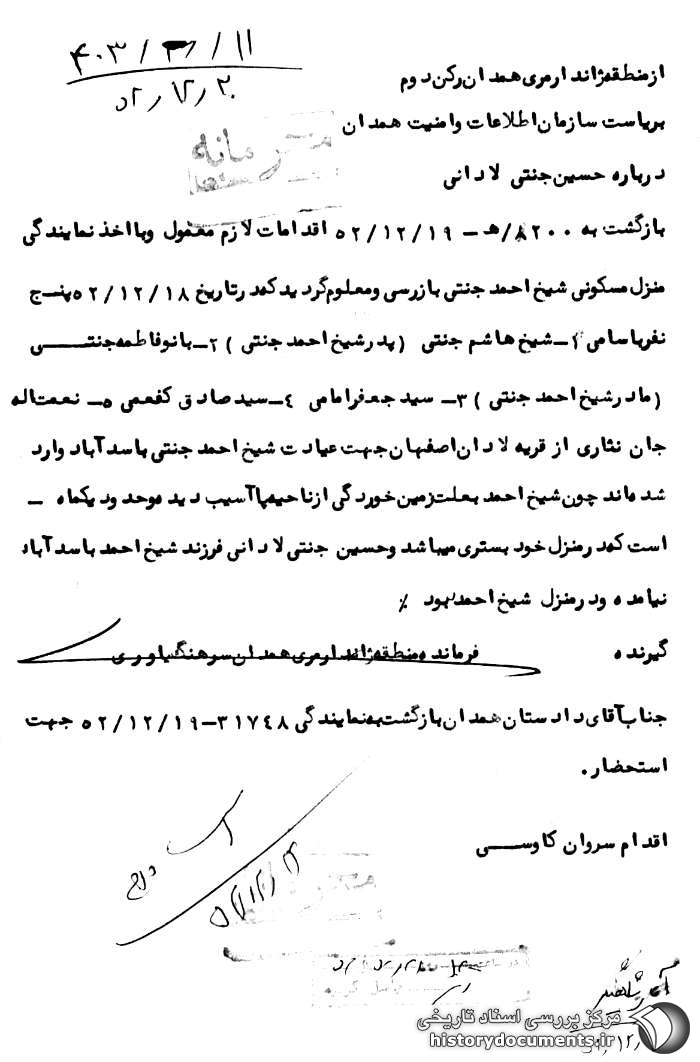 ۴۰۳/۳/۱۱
۵۲/۱۲/۲۰
ازمنطقه ژاندارمری همدان رکن دوم
بریاست سازمان اطلاعات وامنیت همدان
محرمانه
درباره حسین جنتی لادانی
بازگشت به ۸۲۰۰/هـ - ۵۲/۱۲/۱۹ اقدامات لازم معمول وبااخذ نمایندگی
منزل مسکونی شیخ احمد جنتی بازرسی ومعلوم گردید که در تاریخ ۵۲/۱۲/۱۸ پنج
نفر باسامی ۱- شیخ هاشم جنتی (پدر شیخ احمد جنتی) ۲- بانو فاطمه جنتی
(مادر شیخ احمد جنتی) ۳- سید جعفر امامی ۴- سید صادق کفعمی ۵- نعمت اله
جان نثاری از قریه لادان اصفهان جهت عیادت شیخ احمد جنتی باسدآباد وارد
شده اند چون شیخ احمد بعلت زمین خوردگی از ناحیه پا آسیب دیده وحدود یکماه -
است که در منزل خود بستری میباشد وحسین جنتی لادانی فرزند شیخ احمد باسدآباد
نیامده ودر منزل شیخ احمد نبود ٪
گیرنده فرمانده منطقه ژاندارمری همدان سرهنگ یاوری
جناب آقای دادستان همدان بازگشت به نمایندگی ۳۱۷۴۸-۵۲/۱۲/۱۹ جهت
استحضار.
اقدام سروان کاوسی
مرکز بررسی اسناد تاریخی
historydocuments.ir